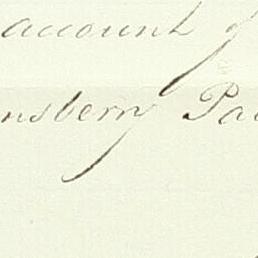 account of
nsberry Pa